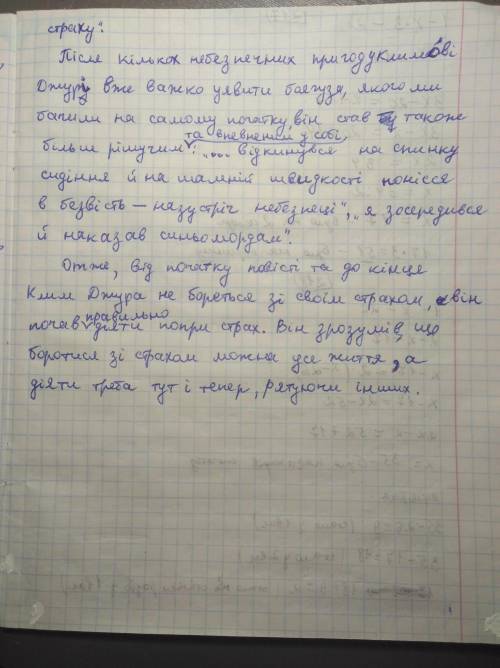 страху".
Після кількох небезпечних пригод у Климові
Джурі вже важко уявити боягуза, якого ми
бачили на самому початку, він став також
більше рішучим та впевненим у собі: „... відкинувся на спинку
сидіння й на шаленій швидкості понісся
в безвість – назустріч небезпеці", „я зосередився
й наказав синьомордам".
Отже, від початку повісті та до кінця
Клим Джура не бореться зі своїм страхом, він
почав правильно діяти попри страх. Він зрозумів, що
боротися зі страхом можна усе життя, а
діяти треба тут і тепер, рятуючи інших.